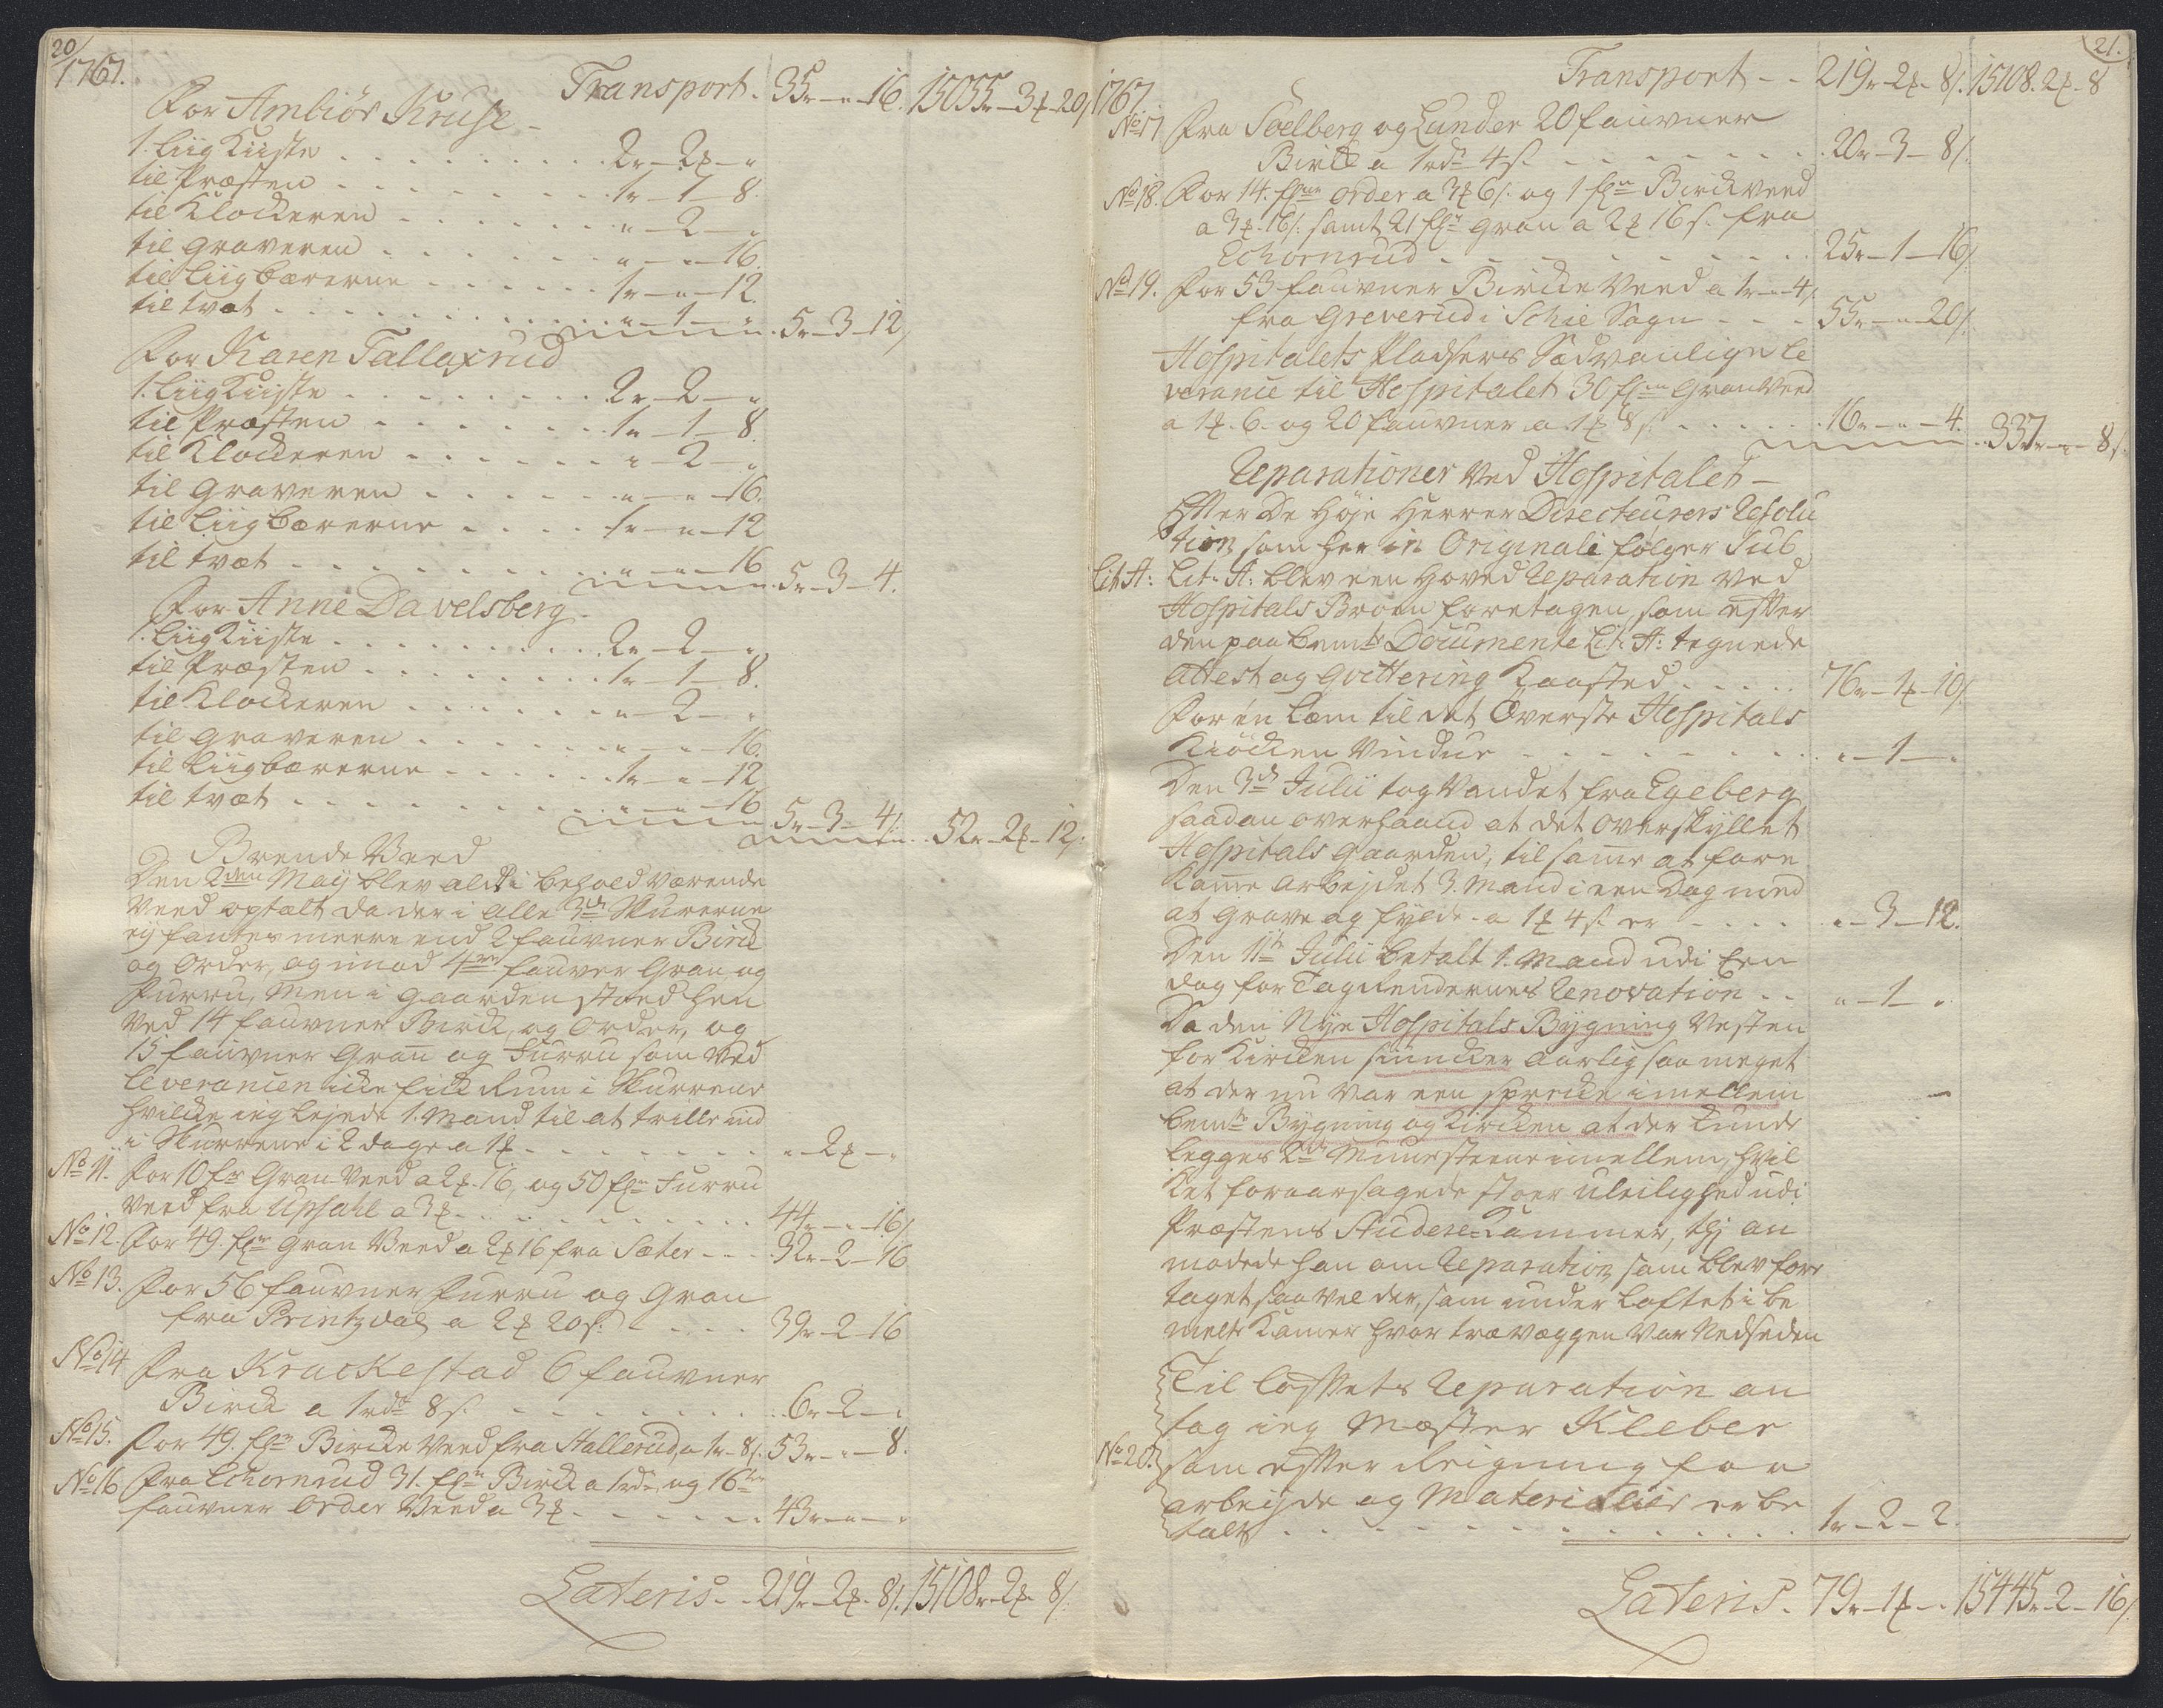 20/
1767.
Transport. 35r-"-16. 15055r-3þ-20/
For Ambiør Kruse-
1. Liig Kiiste . . . . . . . . . 2r-2þ-"
til Præsten . . . . . . . . 1r-1-8.
til Klockeren . . . . . . . "-2-"
til Graveren . . . . . . . "-"-16.
til Liigbærerne . . . . . . 1r-"-12.
til tvæt . . . . . . . . . . "-1-" 5r-3-12/
For Karen Tallaxrud
1. Liig Kiiste . . . . . . . . 2r-2-"
til Præsten . . . . . . . 1r-1-8.
til Klockeren . . . . . . "-2-"
til Graveren . . . . . . "-"-16.
til Liigbærerne . . . . 1r-"-12
til tvæt . . . . . . . . "-"-16 5r-3-4.
For Anne Davelsberg.
1. Liig Kiiste . . . . . . . . 2r-2-"
til Præsten . . . . . . . . 1r-1-8.
til Klockeren . . . . . . "-2-"
til Graveren . . . . . . "-"-16.
til Liigbærerne . . . . . . 1r-"-12
til tvæt . . . . . . . . . "-"-16 5r-3-4/. 52r-2þ-12/.
Brende Veed
Den 2den Maij blev alt i behold værende
Veed optalt da der i alle 3de Skurerne
ej fantes meere end 2 fauvner Birck
og Order, og imod 4re fauver Gran og
Furru, Men i gaarden stoed hen
ved 14 fauvner Birck, og Order, og
15 fauvner Gran og Furru som ved
leverancen icke fick Rum i Skurrene
hvilcke ieg lejede 1. Mand til at trille ind
i Skurrene i 2 dage a 1þ . . . . . . . "-2þ-"
No 11. For 10 fr Gran-Veed a 2þ.16, og 50 fn Furru
Veed fra Upsahl a 3þ . . . . . . . . . 44r-"-16/.
No 12. For 49. fn Gran Veed a 2þ16 fra Sæter . . . 32r-2-16
No 13. For 56 fauvner Furru og Gran
fra Printzdal a 2þ 20s. . . . . . 39r-2-16
No 14 Fra Krackestad 6 fauvner
Birck a 1rdr 8s. . . . . . . . . 6r-2-"
No 15. For 49. fn Bircke Veed fra Hallerud, a 1r-8/. 53r-"-8.
No 16 Fra Echornrud 31. fn Birck a 1rdr, og 16ten
fauvner Order Veed a 3þ . . . . . . 43r-"-"
Lateris . . 219r-2þ-8/. 15108r-2þ-8/.
21.
1767.
Transport - - 219r-2þ-8/. 15108.2þ-8
No 17 Fra Soelberg og Lunder 20 fauvner
Birck a 1rdr 4s. . . . . . . . . 20r-3-8/.
No 18. For 14. fn order a 3þ6/. og 1 fn Birckveed
a 3þ.16/. samt 21 fn gran a 2þ 16s. fra
Echornrud . . . . . . . . . . 25r-1-16/.
No 19. For 53 fauvner Bircke Veed a 1r-"-4/.
fra Greverud i Schie Sogn - - - 55r-"-20/.
Hospitalets Pladsers Sædvanlige le
verance til Hospitalet 30 fn Gran Veed
a 1þ.6. og 20 fauvner a 1þ8s. . . . . . 16r-"-4. 337r-"-8/.
Reparationer ved Hospitalet-
Efter De Høje Herrer Directeurers Resolu
tion, som her in Originali følger Sub
Lit A: Lit. A: blev een Hoved Reparation ved
Hospitals Broen foretagen, som efter
den paa bemte Documente Lit. A: tegnede
Attest og Qvittering Kaasted . . . . . 76r-1þ-10/.
For en Læm til det Överste Hospitals
Kiöcken Vindue . . . . . . . . "-1-"
Den 3de Julii tog Vandet fra Egeberg
saadan overhaand at det overskyllet
Hospitals gaarden, til samme at fore
komme arbejdet 3. Mand i een Dag med
at grave og fylde a 1þ 4s. er . . . . . "-3-12.
Den 11te Julii betalt 1. Mand udi Een
dag for TagRendernes Renovation . . "-1-"
Da den Nye Hospitals Bygning Vesten
for Kircken siuncker aarlig saa meget
at der nu var een sprecke imellem
bemte Bygning og Kircken at der kunde
legges 2de Muursteene imellem, hvil
ket foraarsagede stoer uleilighed udi
Præstens Studere-Kammer, thj an
modede han om Reparation, som blev fore
taget saavel der, som under loftet i be
melte Kamer hvor trævæggen var Nedseden
Til Loftets Reparation an
tog ieg Mæster Kleber
No 20. som efter Reigning for
arbejde og Materialier er be
talt . . . . . . . . . . . . . . . 1r-2-2.
Lateris. 79r-1þ-" 15445r-2-16/.